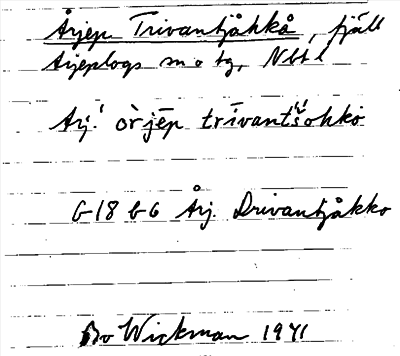 Årjep Trivantjåhkå, fjäll
Arjeplogs sn o tg, Nbt l
Arj.' òrjēp trīvantšohko
G 18 b G Årj. Drivantjåkko
Bo Wickman 1971